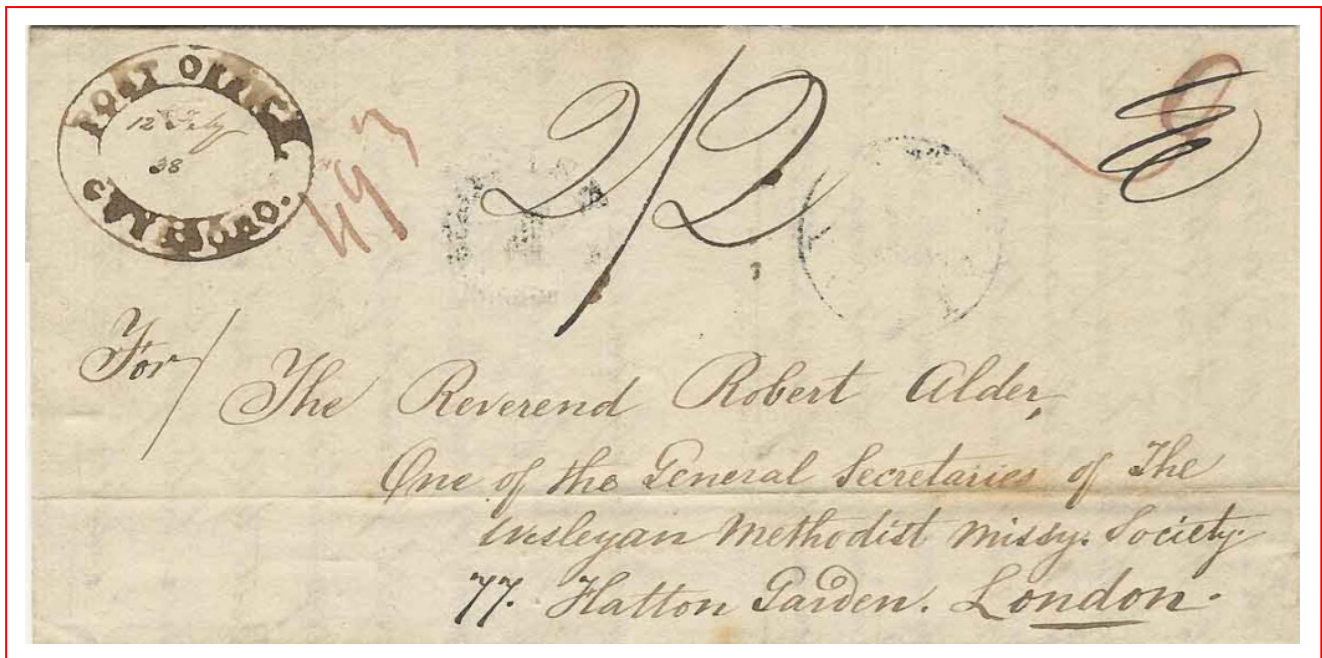 POST OFFICE
12 Feby
38
GUYSBORO.
2/2
For/
The Reverend Robert Alder,
One of the General Secretaries of The
Wesleyan Methodist Missy. Society.
77. Hatton Garden. London.